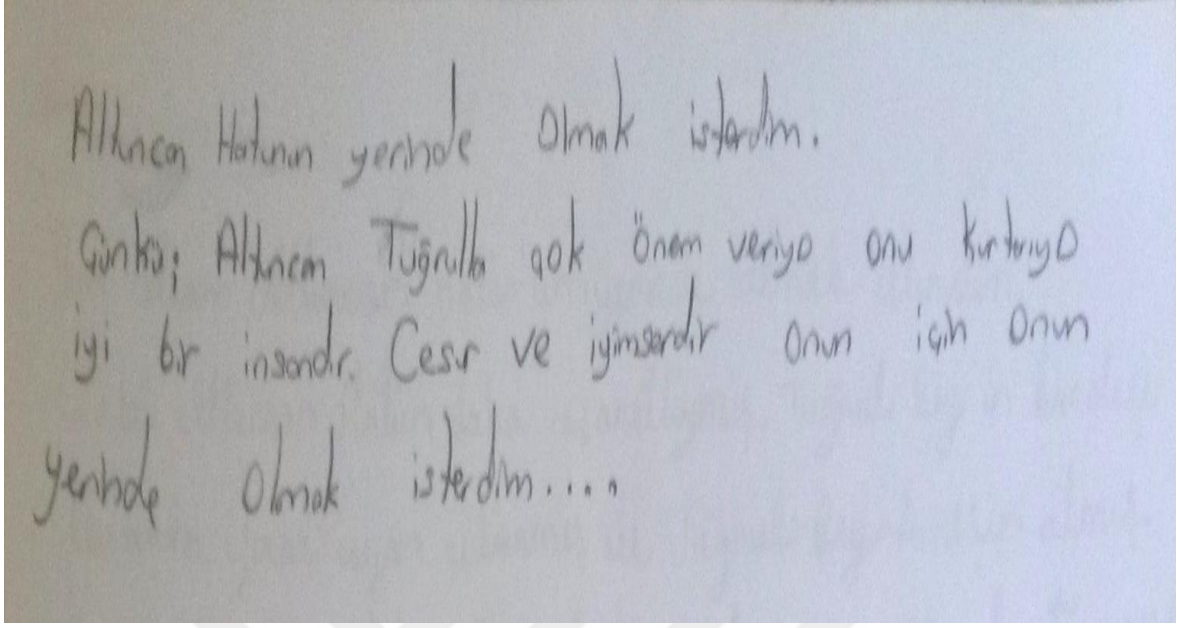 Altıncan Hatunun yerinde olmak isterdim.
Çünkü; Altıncan Tuğrulla çok önem veriyo onu kurtarıyo
iyi bir insandır. Cesur ve iyimserdir onun için onun
yerinde olmak isterdim....